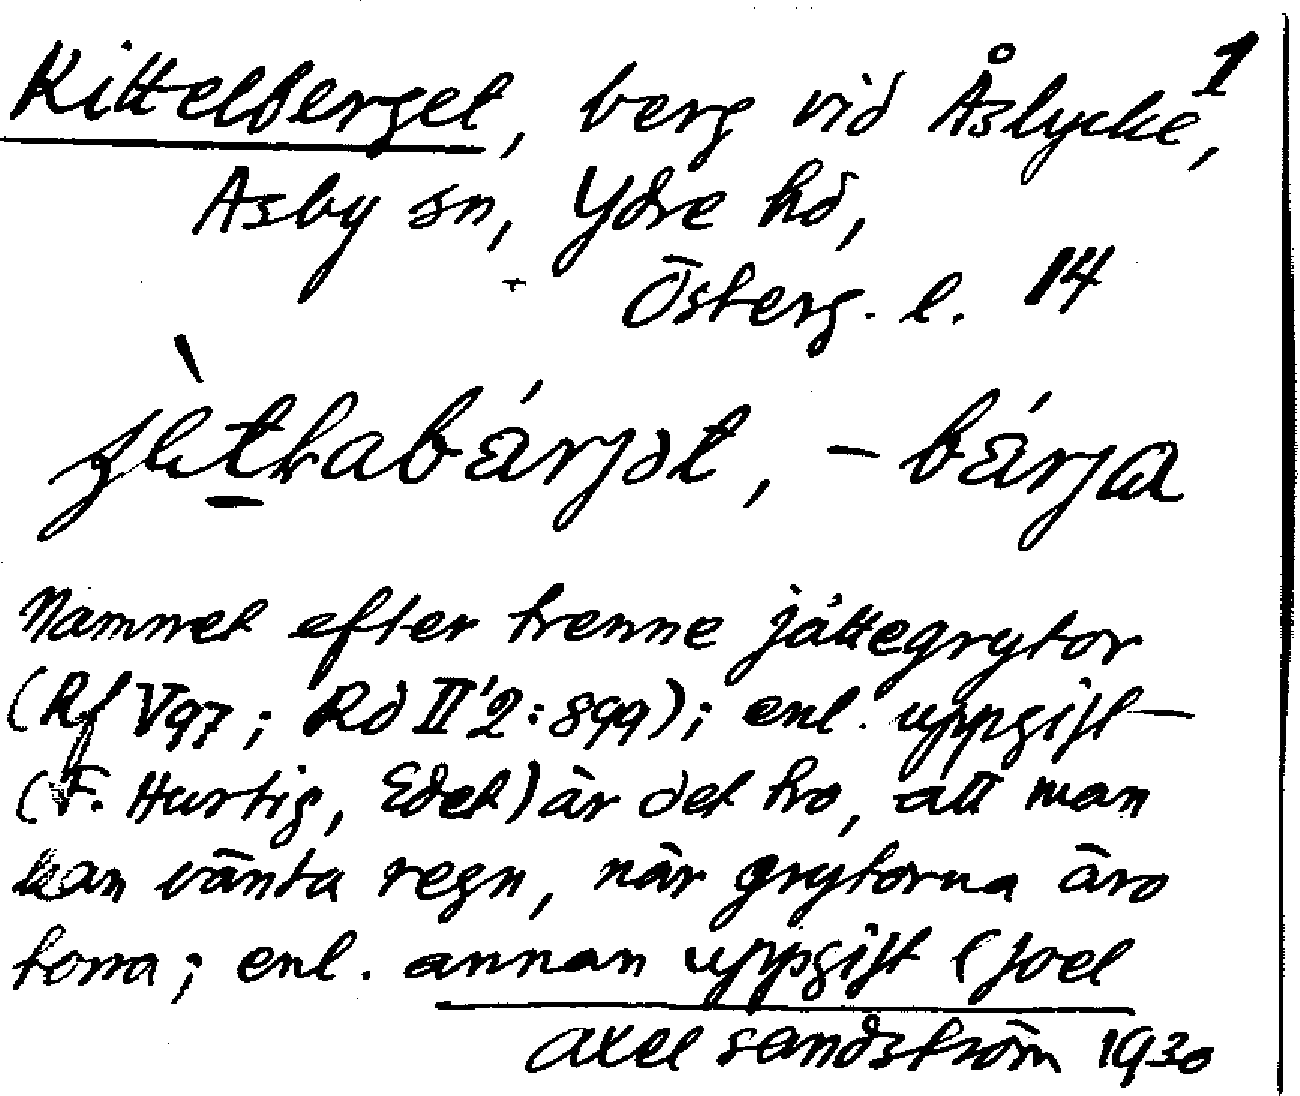 Kittelberget, berg vid Åslycke, 1
Asby sn, Ydre hd,
Österg. l. 14
-bárja
Namnet efter trenne jättegrytor
(Rf V97; Rd II'2:899); enl. uppgift
(F. Hurtig, Edet) är det tro, att man
kan vänta regn, när grytorna äro
torra; enl. annan uppgift (Joel
Axel Sandström 1930